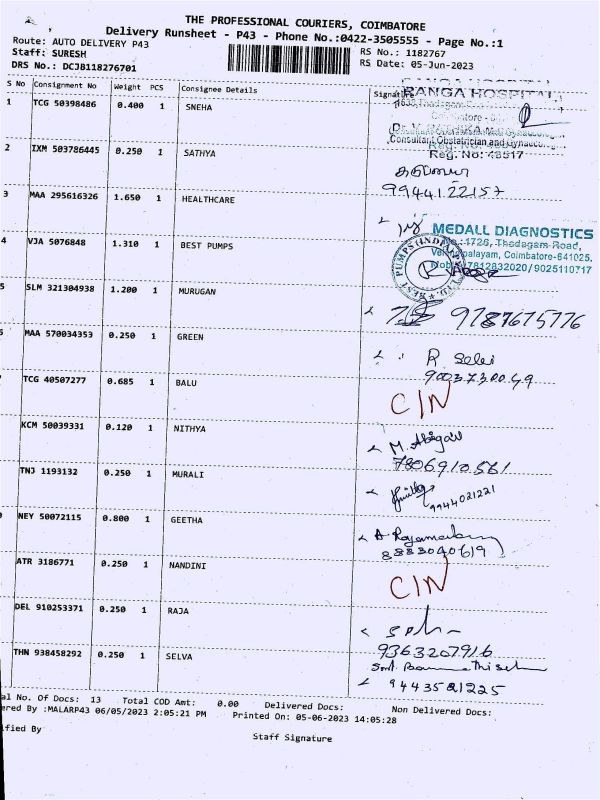 THE PROFESSIONAL COURIERS, COIMBATORE
Delivery Runsheet - P43 - Phone No.:0422-3505555 - Page No.:1
Route: AUTO DELIVERY P43
Staff: SURESH
DRS No.: DCJB118276701
RS No.: 1182767
RS Date: 05-Jun-2023
S No Consignment No Weight PCS Consignee Details
1 TCG 50398486 0.400 1 SNEHA
RANGA HOSPITAL
Consultant Obstetrician and Gynaecologist
Reg. No: 48517
2 IXM 503786445 0.250 1 SATHYA
9944122157
3 MAA 295616326 1.650 1 HEALTHCARE
MEDALL DIAGNOSTICS
1726, Thadagam Road,
Coimbatore-641025.
7812832020/9025110717
4 VJA 5076848 1.310 1 BEST PUMPS
5 SLM 321304938 1.200 1 MURUGAN
9787675776
MAA 570034353 0.250 1 GREEN
R. Selvi
9003730049
TCG 40507277 0.685 1 BALU
C/N
KCM 50039331 0.120 1 NITHYA
7806910561
TNJ 1193132 0.250 1 MURALI
9944021221
NEY 50072115 0.800 1 GEETHA
8883040619
ATR 3186771 0.250 1 NANDINI
C/N
DEL 910253371 0.250 1 RAJA
9363207916
THN 938458292 0.250 1 SELVA
9443521225
al No. Of Docs: 13 Total COD Amt: 0.00 Delivered Docs: Non Delivered Docs:
ered By :MALARP43 06/05/2023 2:05:21 PM Printed On: 05-06-2023 14:05:28
ified By
Staff Signature